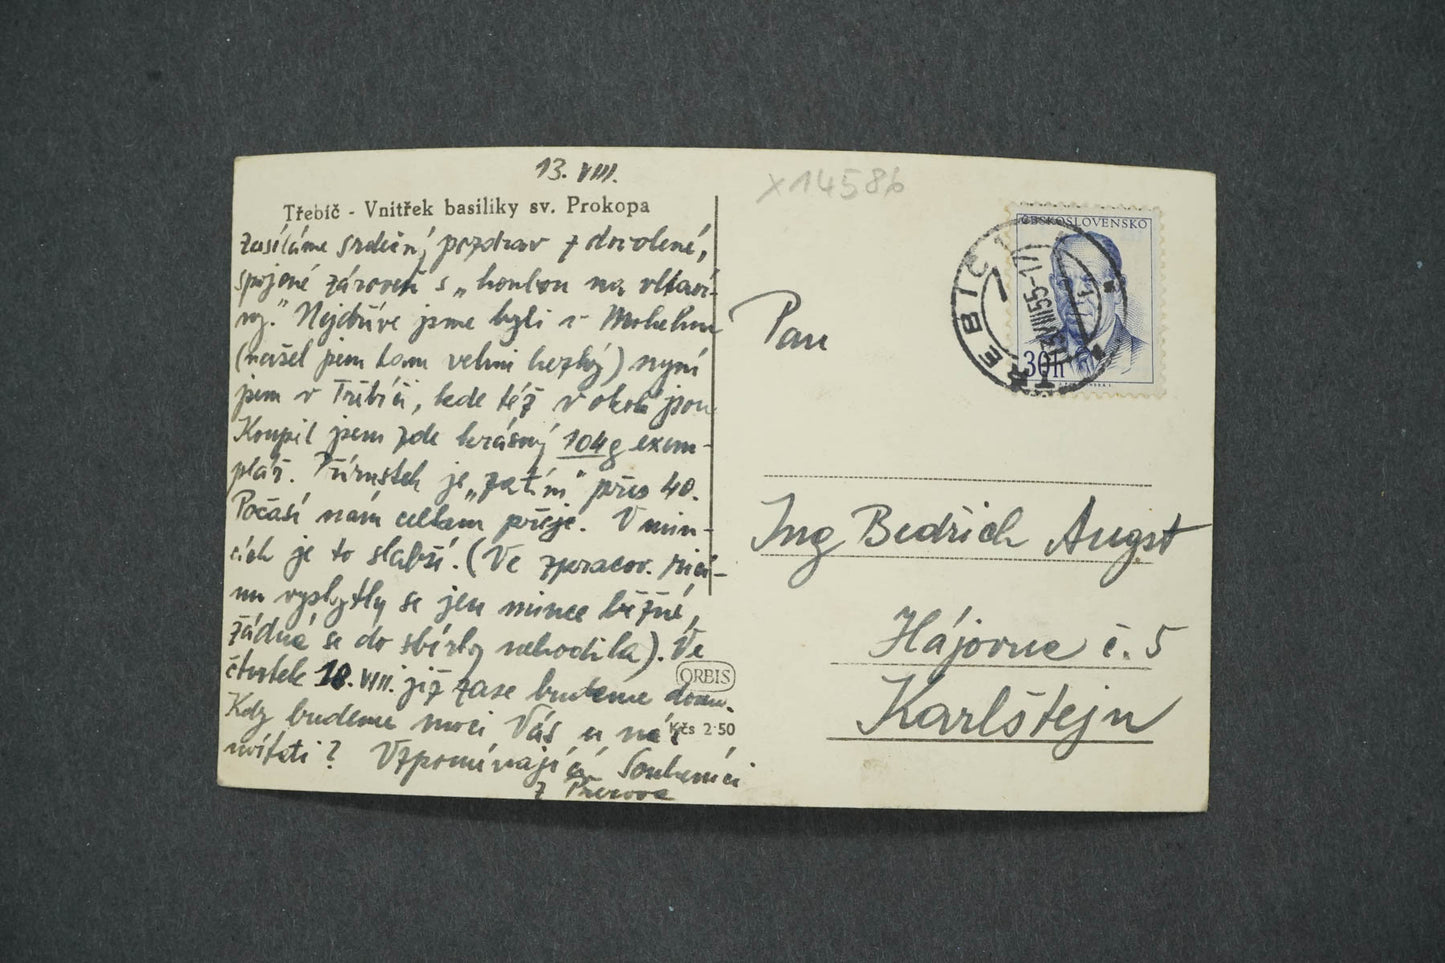 13. VIII.
Třebíč - Vnitřek basiliky sv. Prokopa
Zasíláme srdečný pozdrav z dovolené,
spojené zároveň s „honbou na vltaví-
ny." Nejdříve jsme byli v Mohelnu
(našel jsem tam velmi hezký) nyní
jsem v Třebíči, kde též v okolí jsou.
Koupil jsem zde krásný 104g exem-
plář. Přírůstek je „zatím" přes 40.
Počasí nám celkem přeje. V min-
cích je to slabší. (Ve zpracov.
se jen mince běžné,
žádná se do sbírky nehodila). Ve
čtvrtek 18. VIII. již zase budeme doma.
Kdy budeme moci Vás u nás
uvítati? Vzpomínající Soukeníci
z Přerova
ORBIS
Kčs 2·50
x14586
ČESKOSLOVENSKO
30h
TŘEBÍČ 1
VIII 55-17
Pan
Ing Bedřich Augst
Hájovna č. 5
Karlštejn